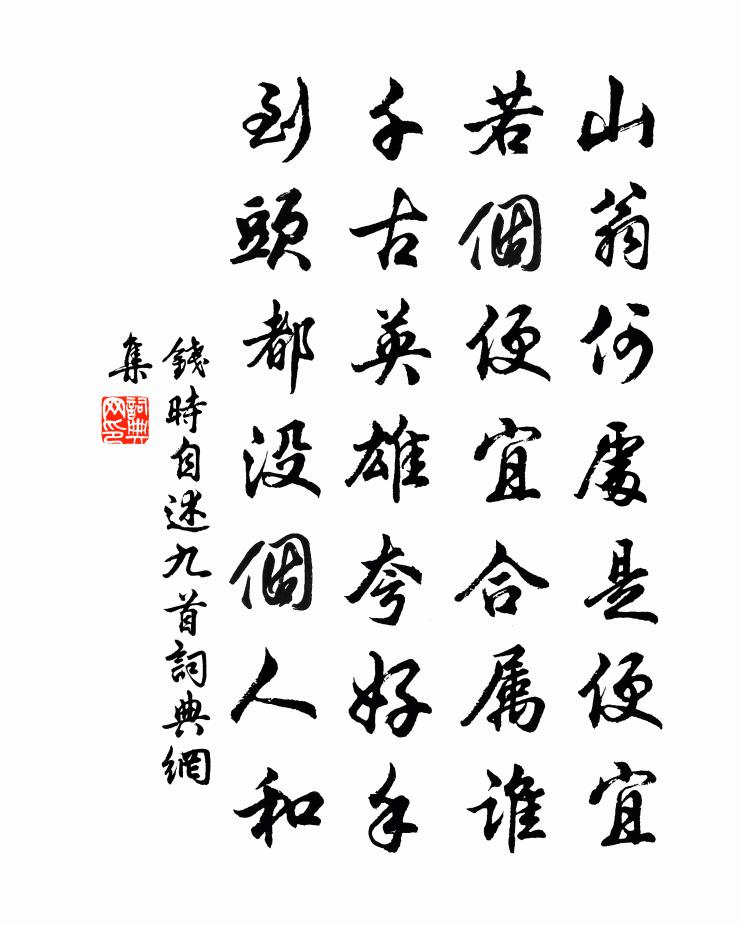 山翁何處是便宜
若個便宜合属誰
千古英雄夸好手
到頭都没個人和
錢時自述九首詞典網
集
詞典網印